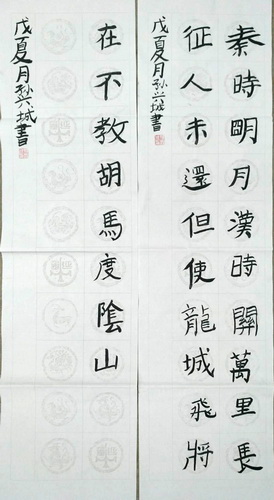 秦時明月漢時關萬里長
征人未還但使龍城飛將
戊夏月孙兴城書
在不教胡馬度陰山
戊夏月孙兴城書